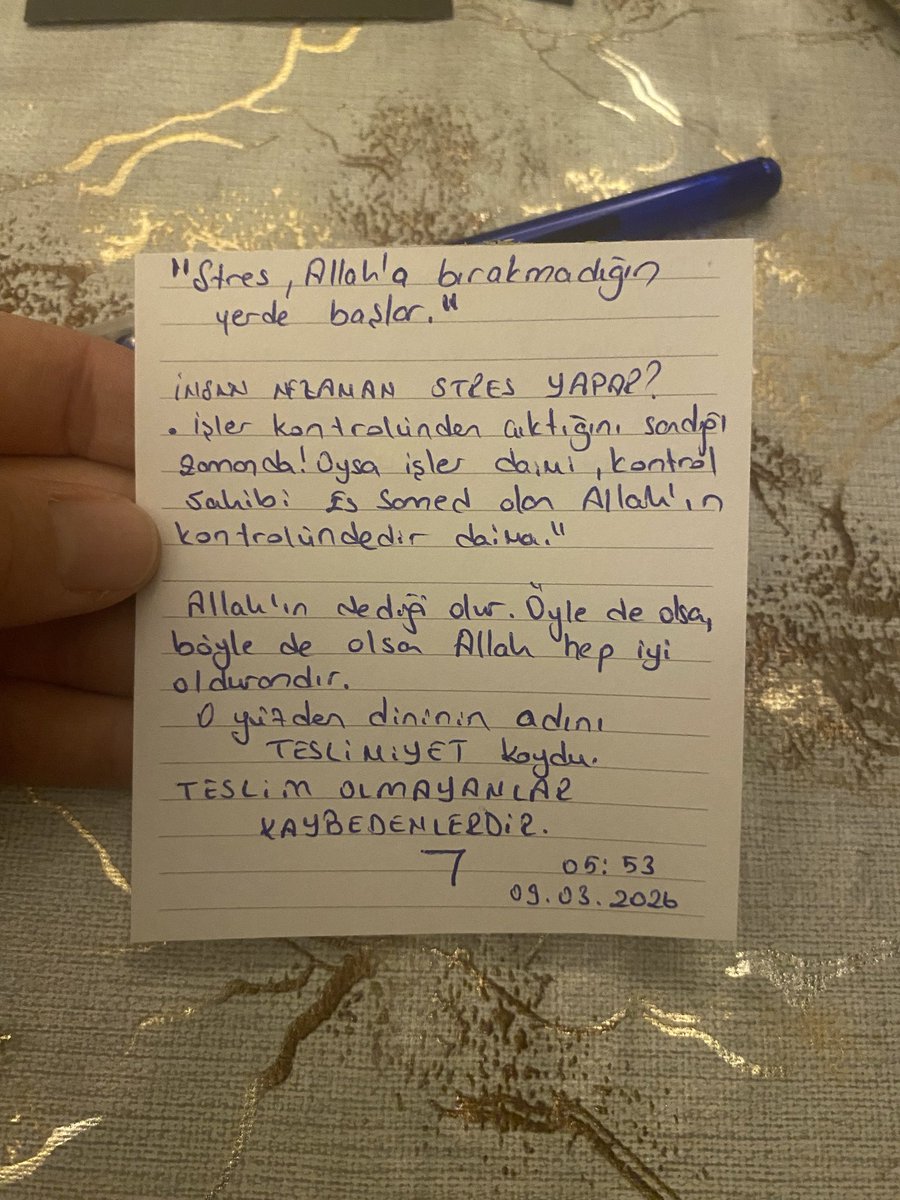 "Stres, Allah'a bırakmadığın
yerde başlar."
İNSAN NEZAMAN STRES YAPAR?
• işler kontrolünden çıktığını sandığı
zamanda! Oysa işler daimi, kontrol
sahibi Es Samed olan Allah'ın
kontrolündedir daima."
Allah'ın dediği olur. Öyle de olsa,
böyle de olsa Allah hep iyi
oldurandır.
O yüzden dininin adını
TESLİMİYET koydu.
TESLİM OLMAYANLAR
KAYBEDENLERDİR.
7 05:53
09.03.2026